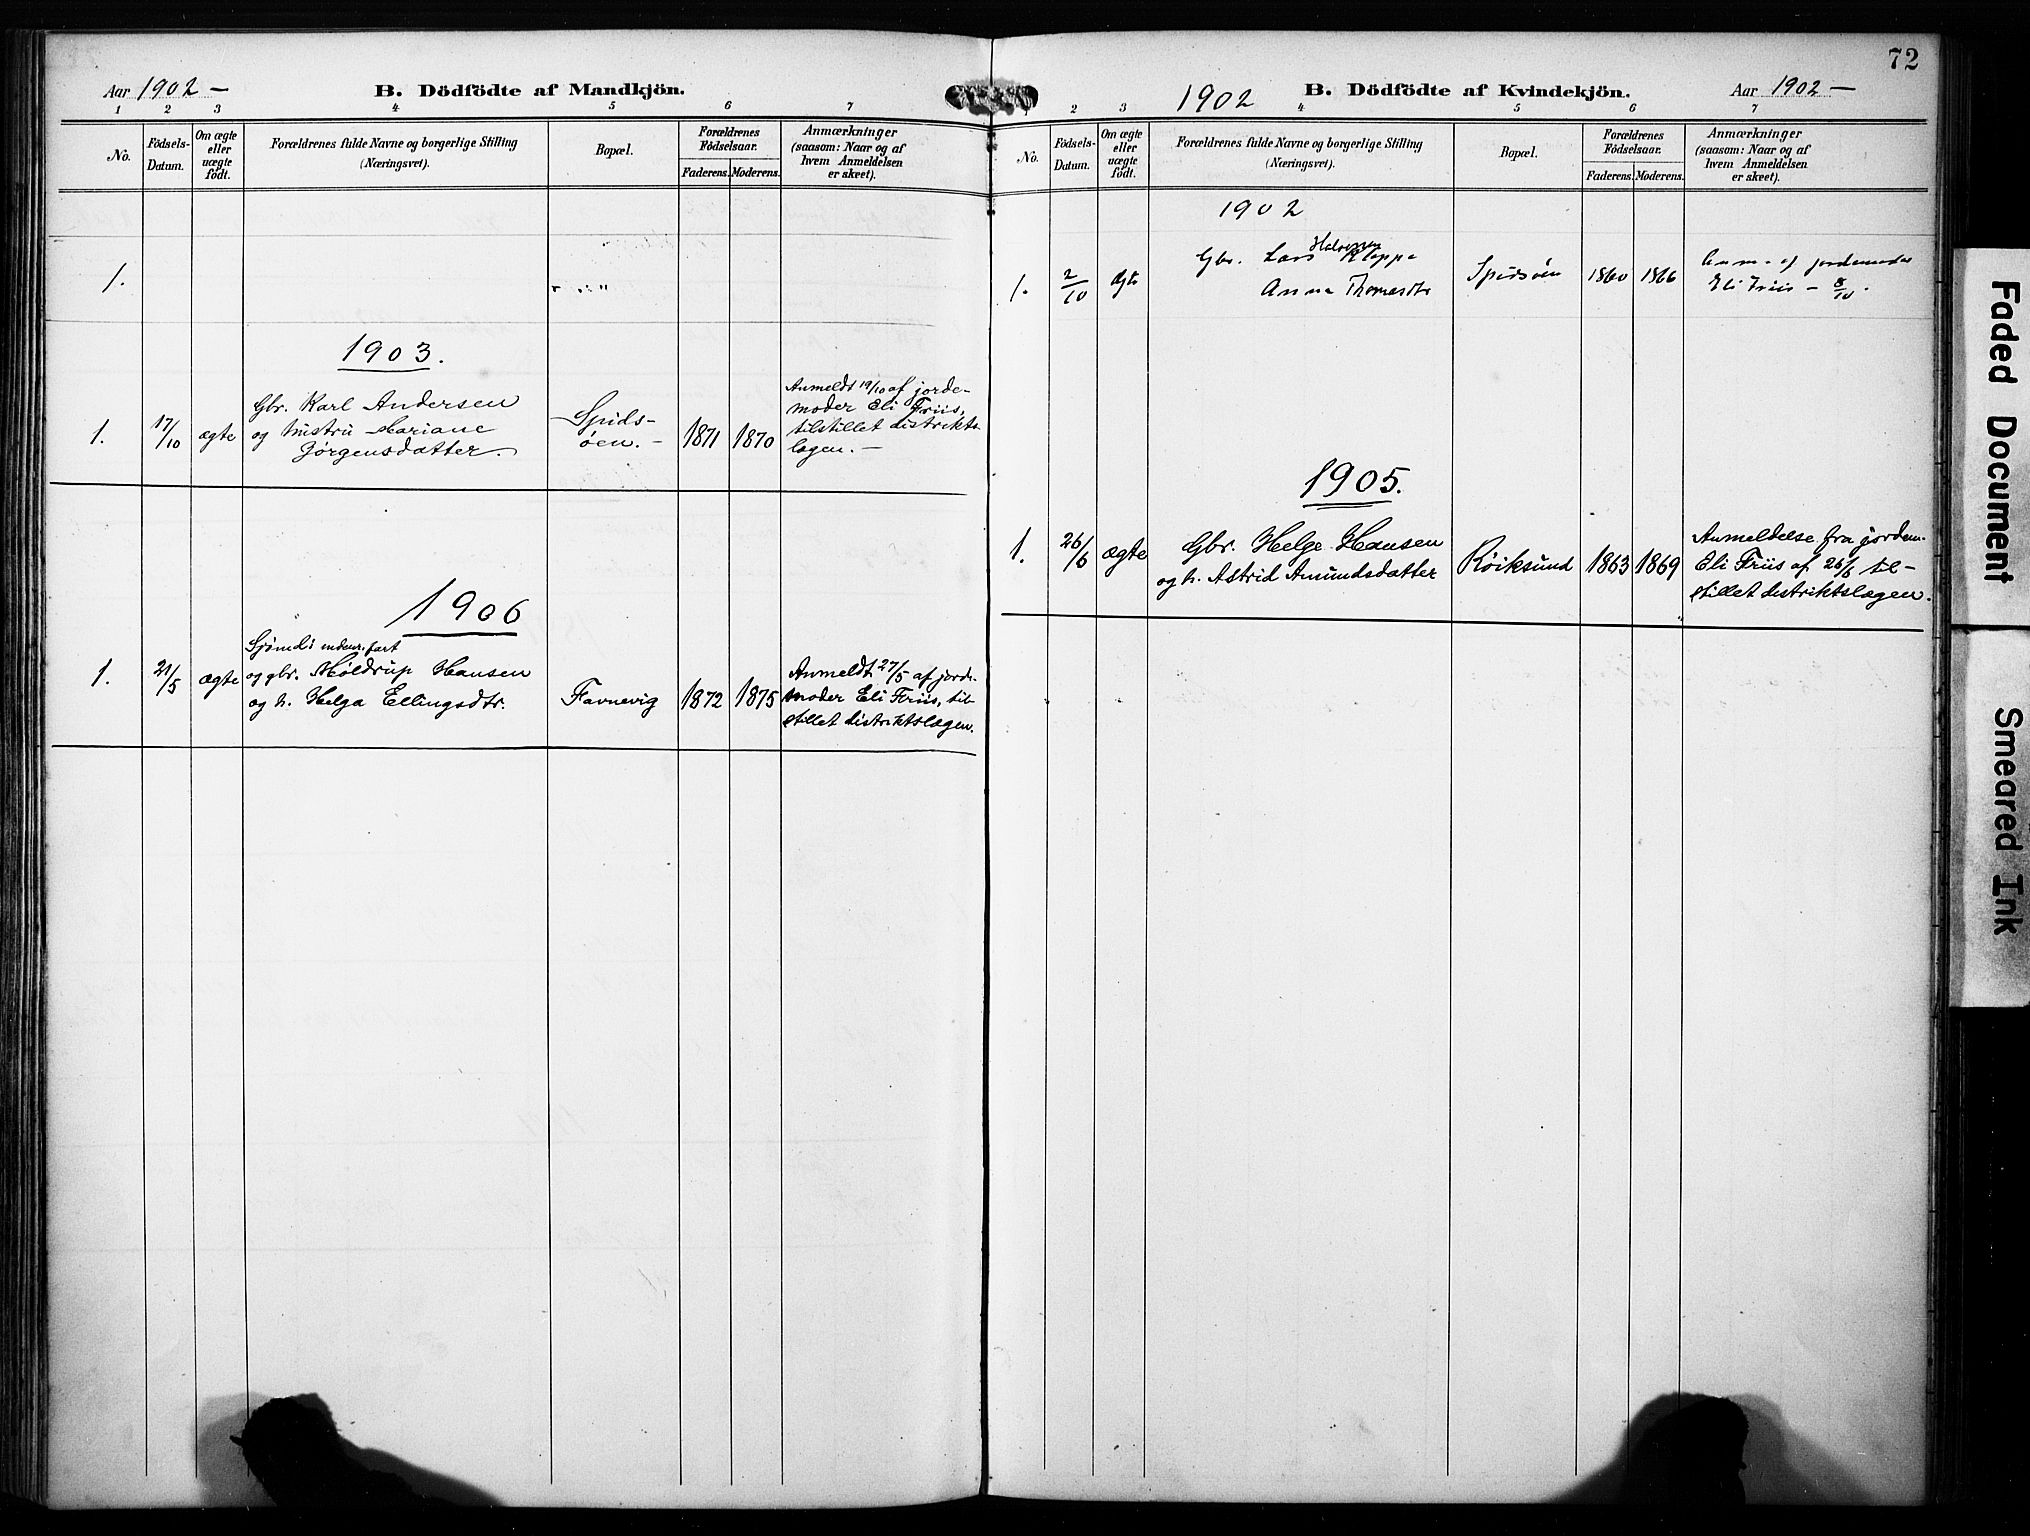 Aar 1902 –
B. Dödfödte af Mandkjön.
1 2 3 4 5 6 7
No.
Födsels-
Datum.
Om ægte
eller
uægte
födt.
Forældrenes fulde Navne og borgerlige Stilling
(Næringsvei).
Bopæl.
Forældrenes
Födselsaar.
Faderens. Moderens.
Anmærkninger
(saasom: Naar og af
hvem Anmeldelsen
er skeet).
1.
1903.
1.
17/10
ægte
Gbr. Karl Andersen
og hustru Mariane
Jørgensdatter.
Spids-
øen. –
1871 1870
Anmeldt 19/10 af jorde-
moder Eli Friis,
tilstillet distrikts-
lægen. –
1906
1.
21/5
ægte
Sjømd i indenr. fart
og gbr. Møldrup Hansen
og h. Helga Ellingsdtr.
Favnevig
1872 1875
Anmeldt 27/5 af jorde-
moder Eli Friis, til-
stillet distriktslægen.
72
1902
B. Dödfödte af Kvindekjön.
Aar 1902 –
1 2 3 4 5 6 7
No.
Födsels-
Datum.
Om ægte
eller
uægte
födt.
Forældrenes fulde Navne og borgerlige Stilling
(Næringsvei).
Bopæl.
Forældrenes
Födselsaar.
Faderens. Moderens.
Anmærkninger
(saasom: Naar og af
hvem Anmeldelsen
er skeet).
1902
1.
2/10
ægte
Halvorsen
Gbr. Lars Kleppe
Anna Thomasdtr
Spidsøen
1860 1866
Anm. af jordemoder
Eli Friis – 8/10.
1905.
1.
26/6
ægte
Gbr. Helge Hansen
og h. Astrid Amundsdatter
Røiksund
1863 1869
Anmeldelse fra jordem.
Eli Friis af 26/6 til-
stillet distriktslægen.
Faded Document
Smeared Ink